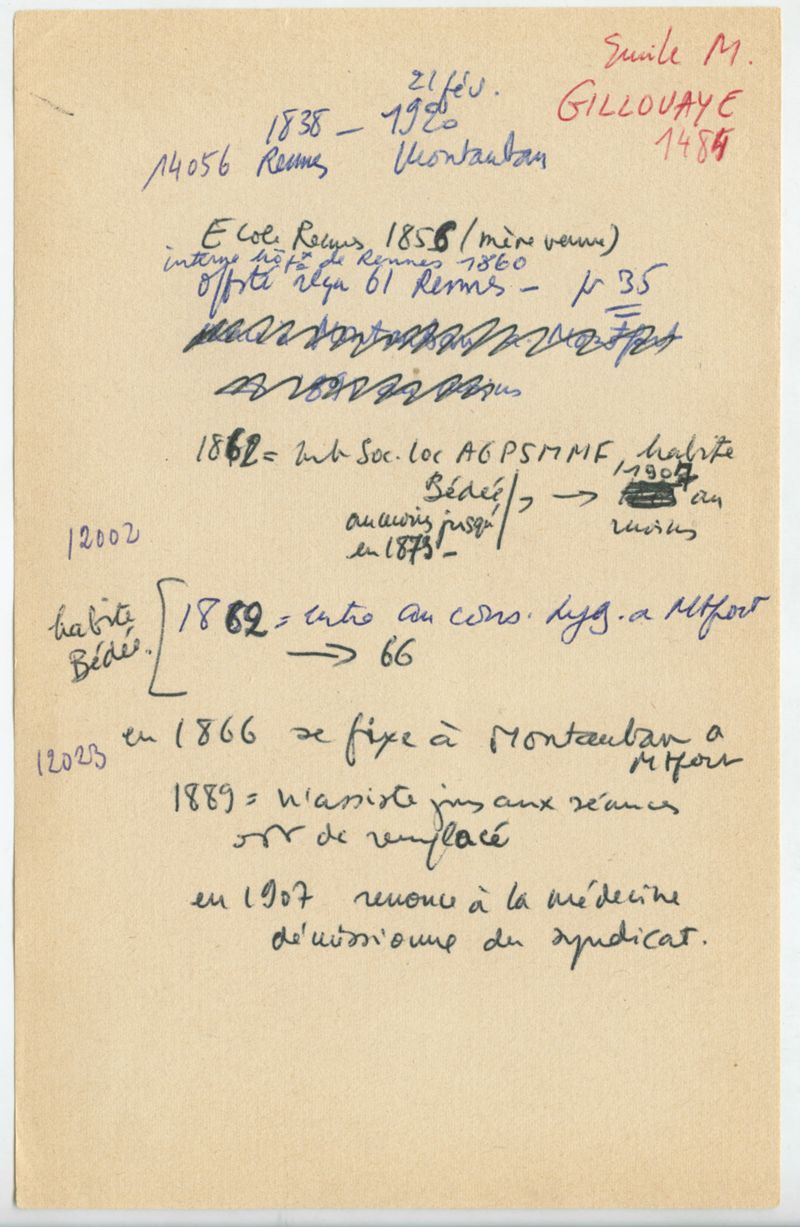 Emile M.
GILLOUAYE
1484
21 fév.
1838 – 1920
14056 Rennes Montauban
Ecole Rennes 1856 (mère veuve)
interne hôp de Rennes 1860
offsté reçu 61 Rennes – 35
1862 = Soc. loc AGPSMMF, habite
Bédée, → 1907 au
au moins jusqu' moins
en 1873 –
12002
habite
Bédée.
1862 = entre au cons. hyg. a Mtfort
→ 66
en 1866 se fixe à Montauban a
Mtfort
12023
1889 = n'assiste jms aux séances
de remplacé
en 1907 renonce à la médecine
démissionne du syndicat.